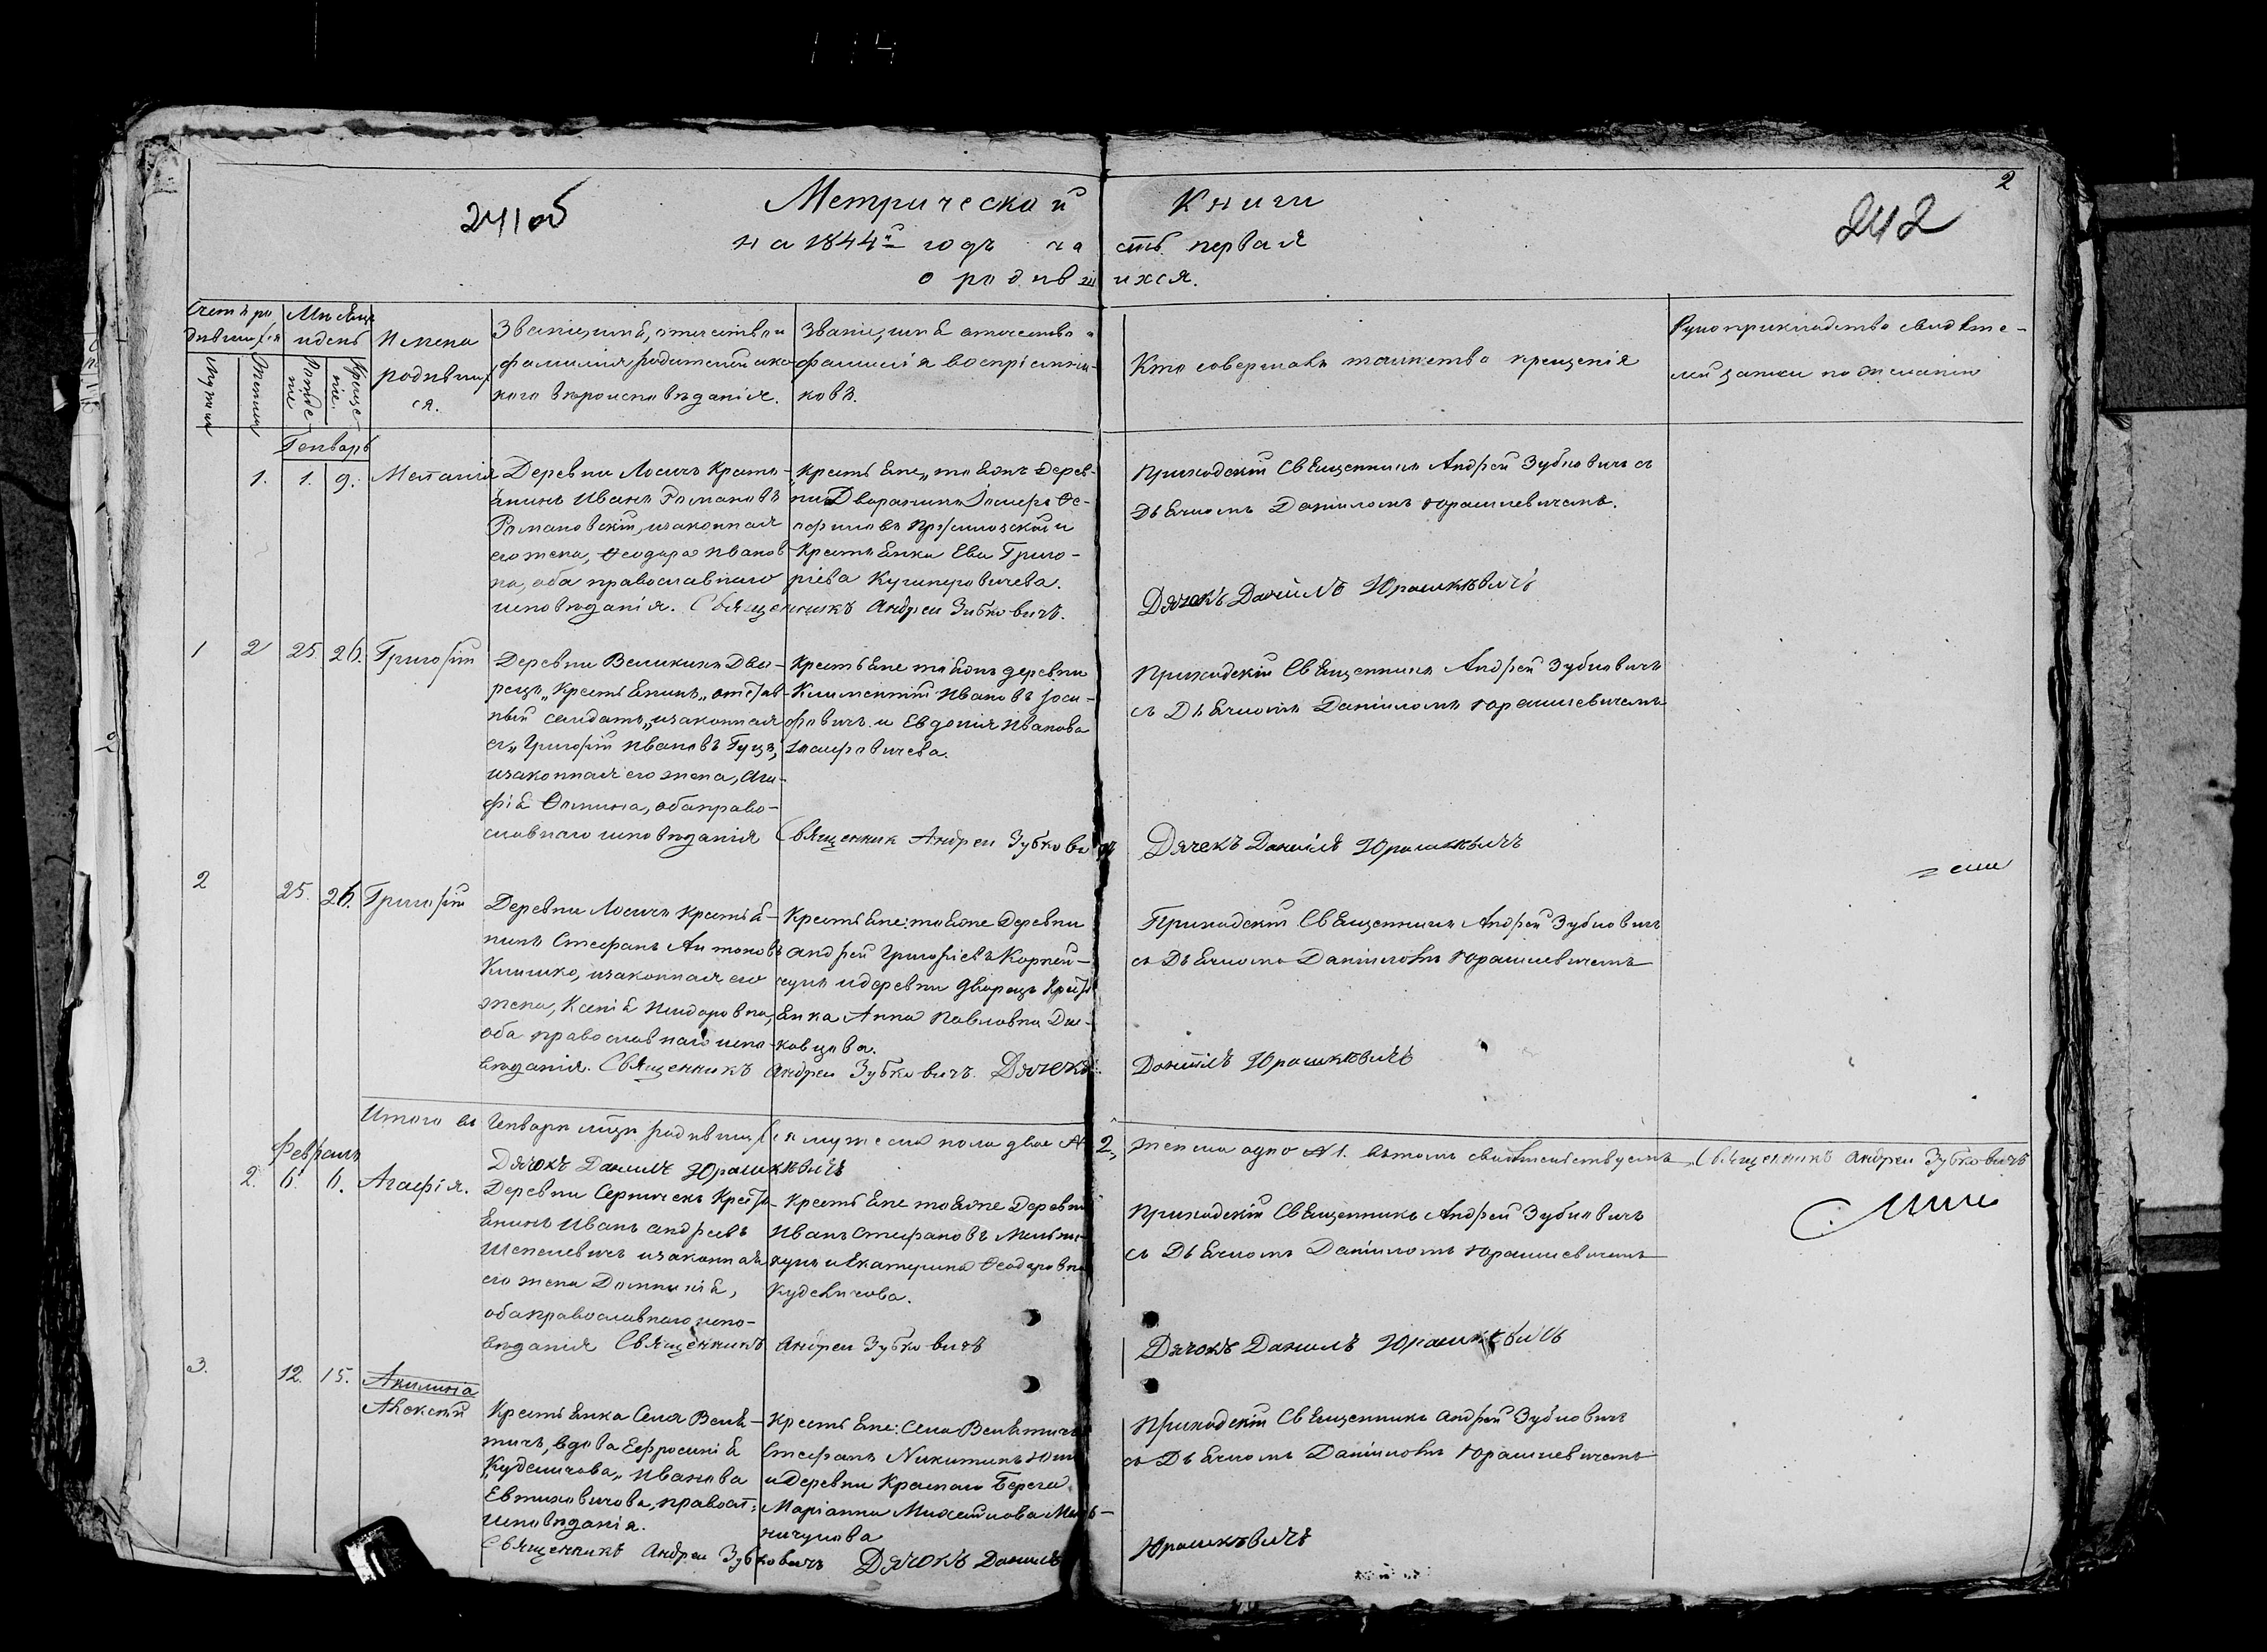 241об
Метрической Книги
2
242
на 1844й годъ часть первая
о родившихся.
Счетъ родившихся
Мужска
Женска
Месяцъ и день
Рожденіе
Крещеніе.
Имена родившихся.
Званіе, имя, отчество и
фамилія родителей и какого
вероисповѣданія.
Званіе, имя отчество и
фамилія воспріемниковъ.
Кто совершалъ таинство крещенія
Рукоприкладство свидѣтелей
записи по желанію
Генварь
1. 1. 9. Меланія
Деревни Лосичъ Крестьянинъ
Иванъ Романовъ
Романовскій, и законная
его жена, Ѳеодора Иванова,
оба православнаго
исповѣданія. Священникъ Андрей Зубковичъ.
Крестьяне, тояжъ Деревни
Дворянинъ Іосифъ
и
Крестьянка Ева Григоріева
Кушнеровичева.
Приходскій Священникъ Андрей Зубковичъ съ
Дьячкомъ Даніиломъ Юрашкевичемъ.
Дячокъ Даниилъ Юрашкѣвичъ
1 2 25. 26. Григорій
Деревни Великихъ Дворецъ
„Крестьянинъ„ отставный
солдатъ, и законная
его Григорій Ивановъ Гуцъ,
и законная его жена, Агафія
Ѳомина, оба православнаго
исповѣданія Священник Андреи Зубковичъ
Крестьяне тояжъ деревни
Климентій Ивановъ Іосифовичъ
и Евдокія Иванова
Іосифовичева.
Приходскій Священникъ Андрей Зубковичъ
съ Дьячкомъ Даніиломъ Юрашкевичемъ
Дячекъ Даниилъ Юрашкѣвичъ
2 25. 26. Григорій
Деревни Лосичъ Крестьянинъ
Стефанъ Антоновъ
Климко, и законная его
жена, Ксенія Исидоровна,
оба православнаго исповѣданія.
Священникъ Андреи Зубковичъ. Дячекъ
Крестьяне: тояже Деревни
Андрей Григоріевъ Корнейчукъ
и деревни Дворецъ Крестьянка
Анна Павловна
Приходскій Священникъ Андрей Зубковичъ
съ Дьячкомъ Даніиломъ Юрашкевичемъ
Даниілъ Юрашкѣвичъ
Итого въ Генваре мцѣ родившихся мужеска пола двое № 2, женска одно № 1. въ томъ свидѣтельствуемъ Священникъ Андреи Зубковичъ
Дячокъ Данилъ Юрашкѣвичъ
Февраль
2. 6. 6. Агафія.
Деревни Серпичекъ Крестьянинъ
Иванъ Андреевъ
Шепелевичъ и законная
его жена Домникія,
оба православнаго исповѣданія
Священникъ Андреи Зубковичъ
Крестьяне тояже Деревни
Иванъ Стефановъ Мельничукъ
и Екатерина Ѳеодоровна
Приходскій Священникъ Андрей Зубковичъ
съ Дьячкомъ Даніиломъ Юрашкевичемъ
Дячокъ Данилъ Юрашкѣвичъ
3. 12. 15. Акилина
Алексѣй
Крестьянка Села Велятичъ,
вдова Ефросинія
„Куделичова„ Иванова
Евтиховичова, православ:
исповѣданія.
Священникъ Андреи Зубковичъ Дячокъ Данилъ
Крестьяне: Села Велятичъ
Стефанъ Никитинъ
и Деревни Краснаго Берега
Маріанна Михайлова Мельничукова
Приходскій Священникъ Андрей Зубковичъ
съ Дьячкомъ Даніиломъ Юрашкевичемъ
Юрашкѣвичъ